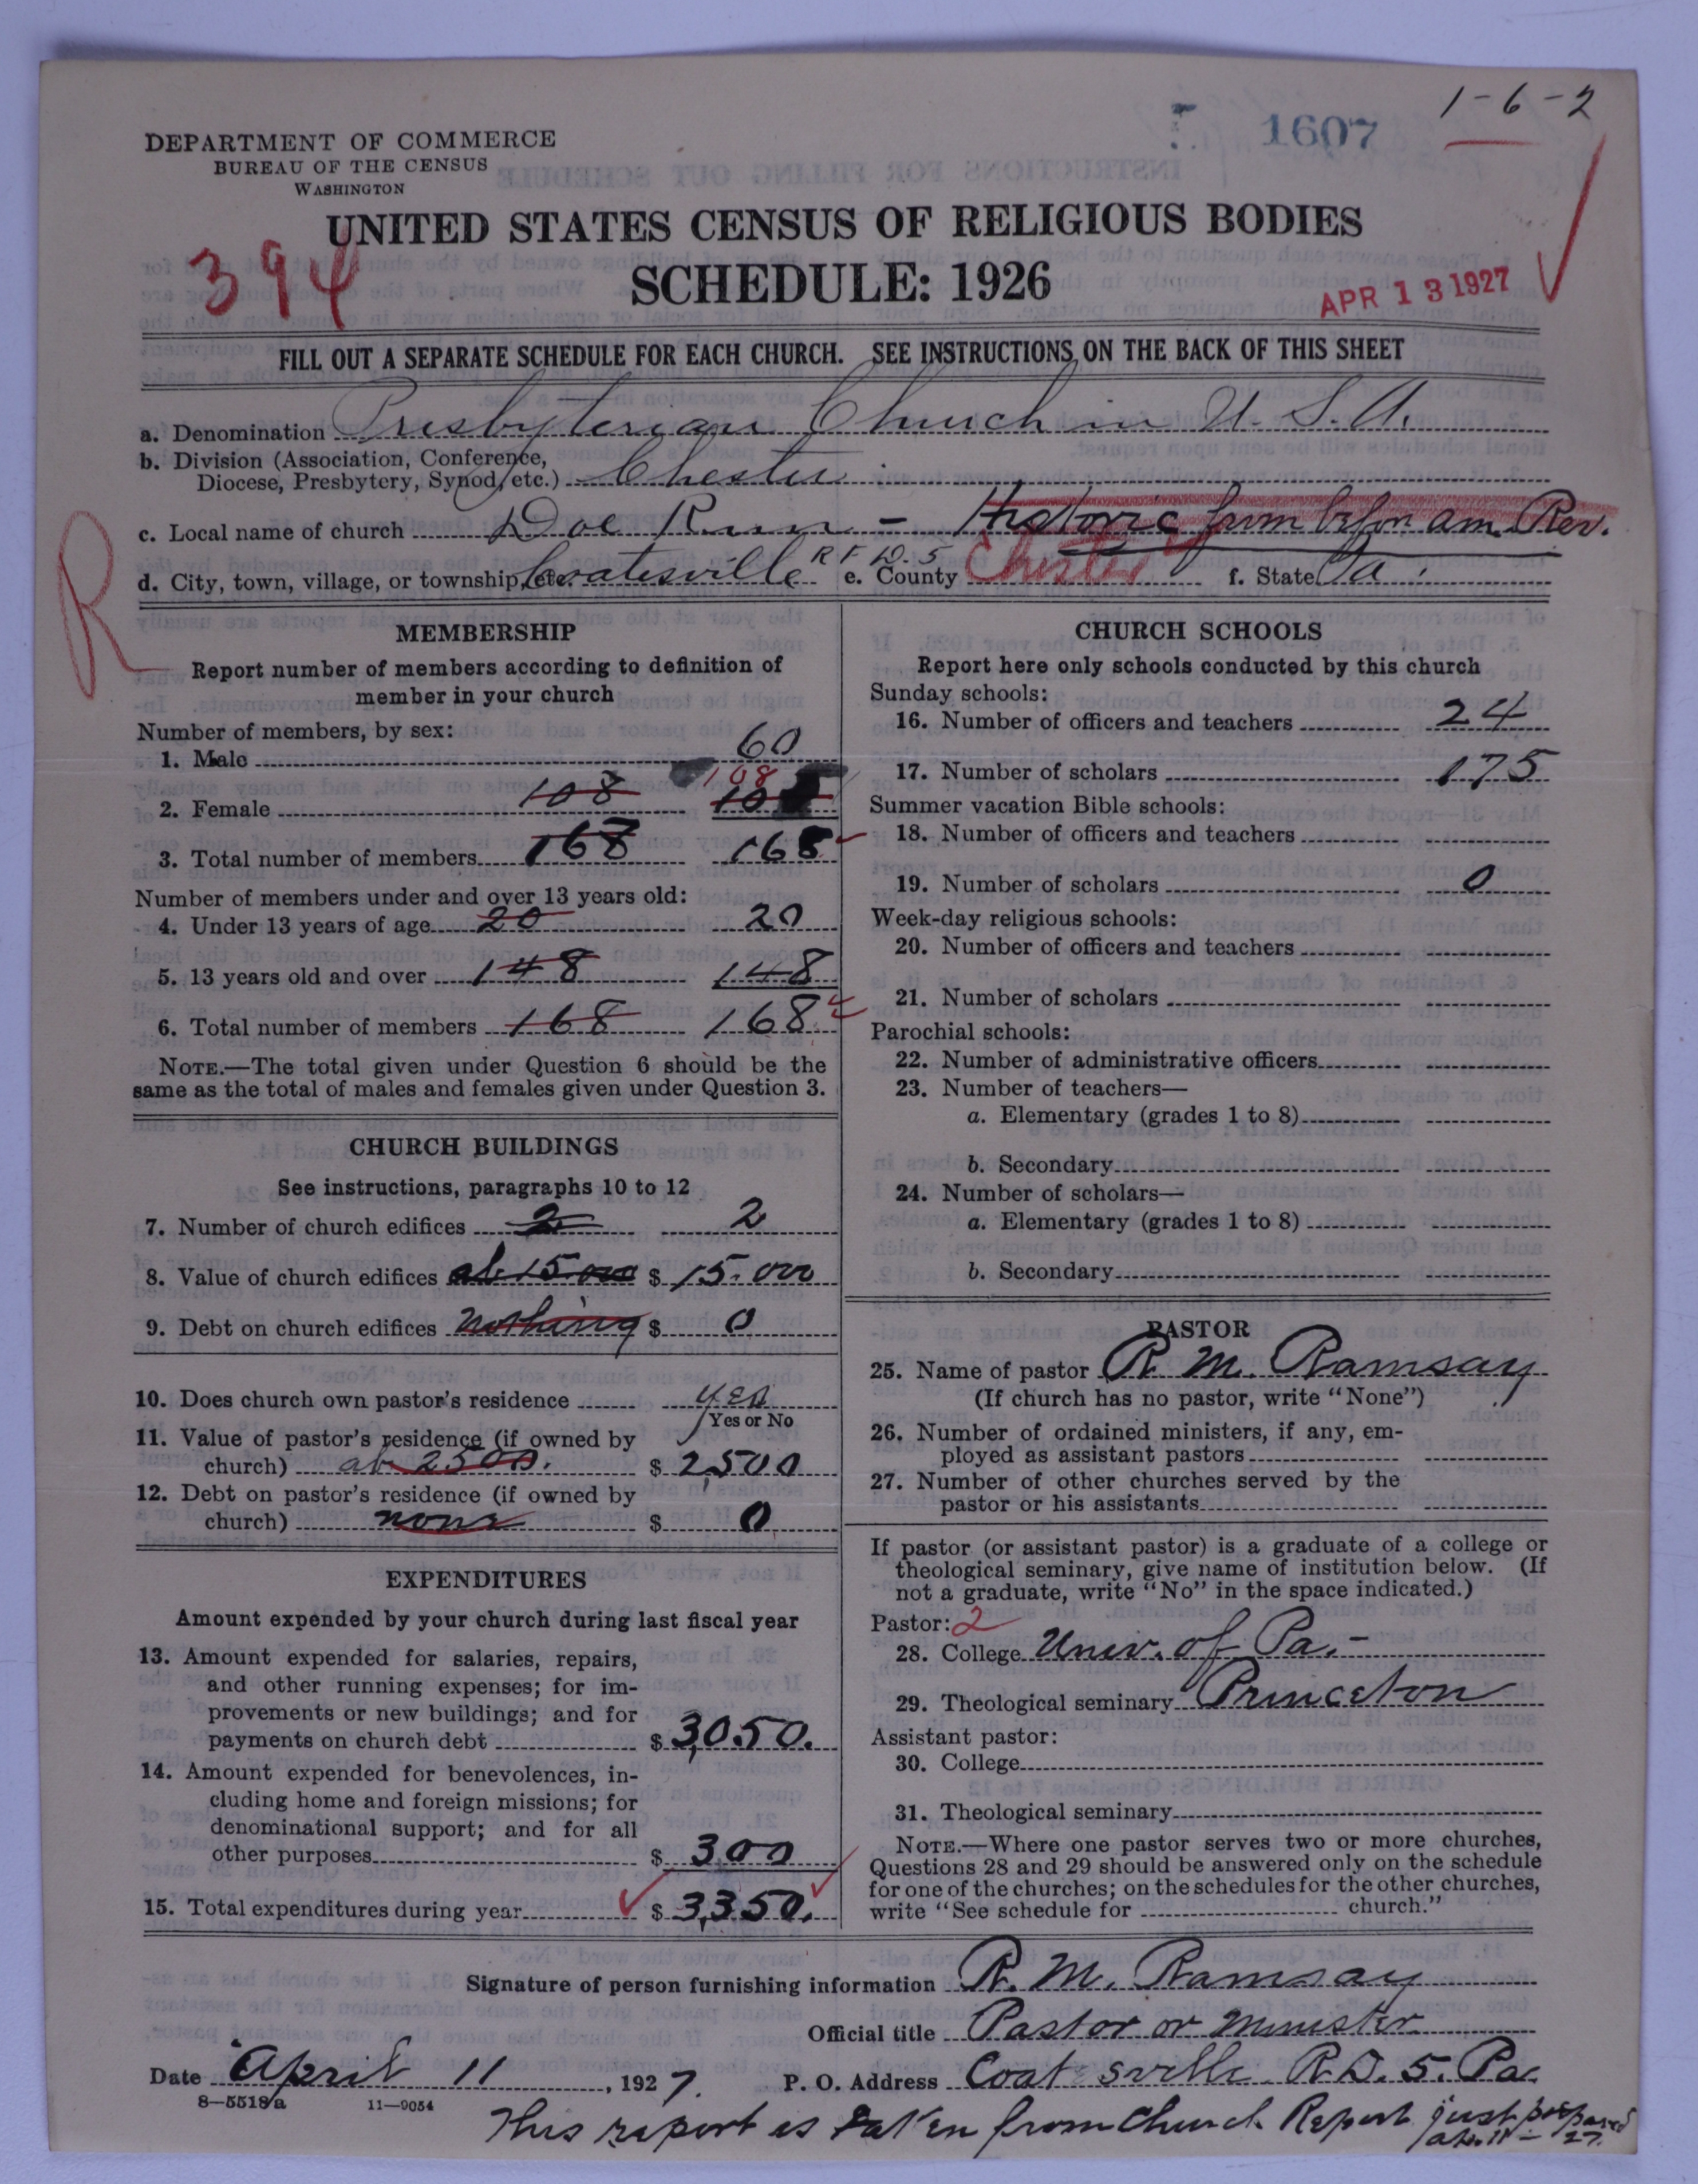 1-6-2
1607
DEPARTMENT OF COMMERCE
BUREAU OF THE CENSUS
WASHINGTON
UNITED STATES CENSUS OF RELIGIOUS BODIES
394
SCHEDULE: 1926
APR 13 1927
FILL OUT A SEPARATE SCHEDULE FOR EACH CHURCH. SEE INSTRUCTIONS ON THE BACK OF THIS SHEET
a. Denomination Presbyterian Church in U. S. A.
b. Division (Association, Conference,
Diocese, Presbytery, Synod, etc.) Chester
c. Local name of church Doe Run - Historic from before am. Rev.
d. City, town, village, or township, etc. Coatesville R F D. 5 e. County Chester f. State Pa.
R
MEMBERSHIP
Report number of members according to definition of
member in your church
Number of members, by sex:
1. Male 60
108
2. Female 108 10
3. Total number of members 168 168
Number of members under and over 13 years old:
4. Under 13 years of age 20 20
5. 13 years old and over 148 148
6. Total number of members 168 168
NOTE.—The total given under Question 6 should be the
same as the total of males and females given under Question 3.
CHURCH BUILDINGS
See instructions, paragraphs 10 to 12
7. Number of church edifices 2 2
8. Value of church edifices ab 15 000 $ 15.000
9. Debt on church edifices nothing $ 0
10. Does church own pastor's residence yes
Yes or No
11. Value of pastor's residence (if owned by
church) ab 2500. $ 2,500
12. Debt on pastor's residence (if owned by
church) none $ 0
EXPENDITURES
Amount expended by your church during last fiscal year
13. Amount expended for salaries, repairs,
and other running expenses; for im-
provements or new buildings; and for
payments on church debt $ 3,050.
14. Amount expended for benevolences, in-
cluding home and foreign missions; for
denominational support; and for all
other purposes $ 300
15. Total expenditures during year $ 3,350.
CHURCH SCHOOLS
Report here only schools conducted by this church
Sunday schools:
16. Number of officers and teachers 24
17. Number of scholars 175
Summer vacation Bible schools:
18. Number of officers and teachers
19. Number of scholars 0
Week-day religious schools:
20. Number of officers and teachers
21. Number of scholars
Parochial schools:
22. Number of administrative officers
23. Number of teachers—
a. Elementary (grades 1 to 8)
b. Secondary
24. Number of scholars—
a. Elementary (grades 1 to 8)
b. Secondary
PASTOR
25. Name of pastor R. M. Ramsay
(If church has no pastor, write "None")
26. Number of ordained ministers, if any, em-
ployed as assistant pastors
27. Number of other churches served by the
pastor or his assistants
If pastor (or assistant pastor) is a graduate of a college or
theological seminary, give name of institution below. (If
not a graduate, write "No" in the space indicated.)
Pastor: 2
28. College Univ. of Pa. -
29. Theological seminary Princeton
Assistant pastor:
30. College
31. Theological seminary
NOTE.—Where one pastor serves two or more churches,
Questions 28 and 29 should be answered only on the schedule
for one of the churches; on the schedules for the other churches,
write "See schedule for church."
Signature of person furnishing information R. M. Ramsay
Official title Pastor or Minister
Date April 11, 1927. P. O. Address Coatesville R.D. 5. Pa.
8—5518a 11—9054
This report is taken from Church Report just prepared
ap. 11 - 27.